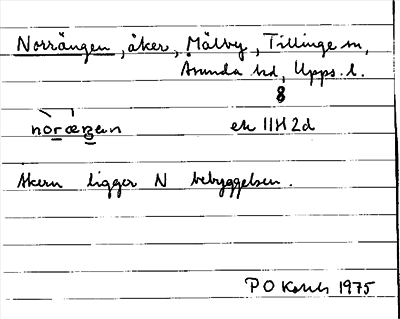 Norrängen, åker, Mälby, Tillinge sn,
Åsunda hd, Upps. l.
8
norær̥en
ek 11H2d
Åkern ligger N bebyggelsen.
P O 1975